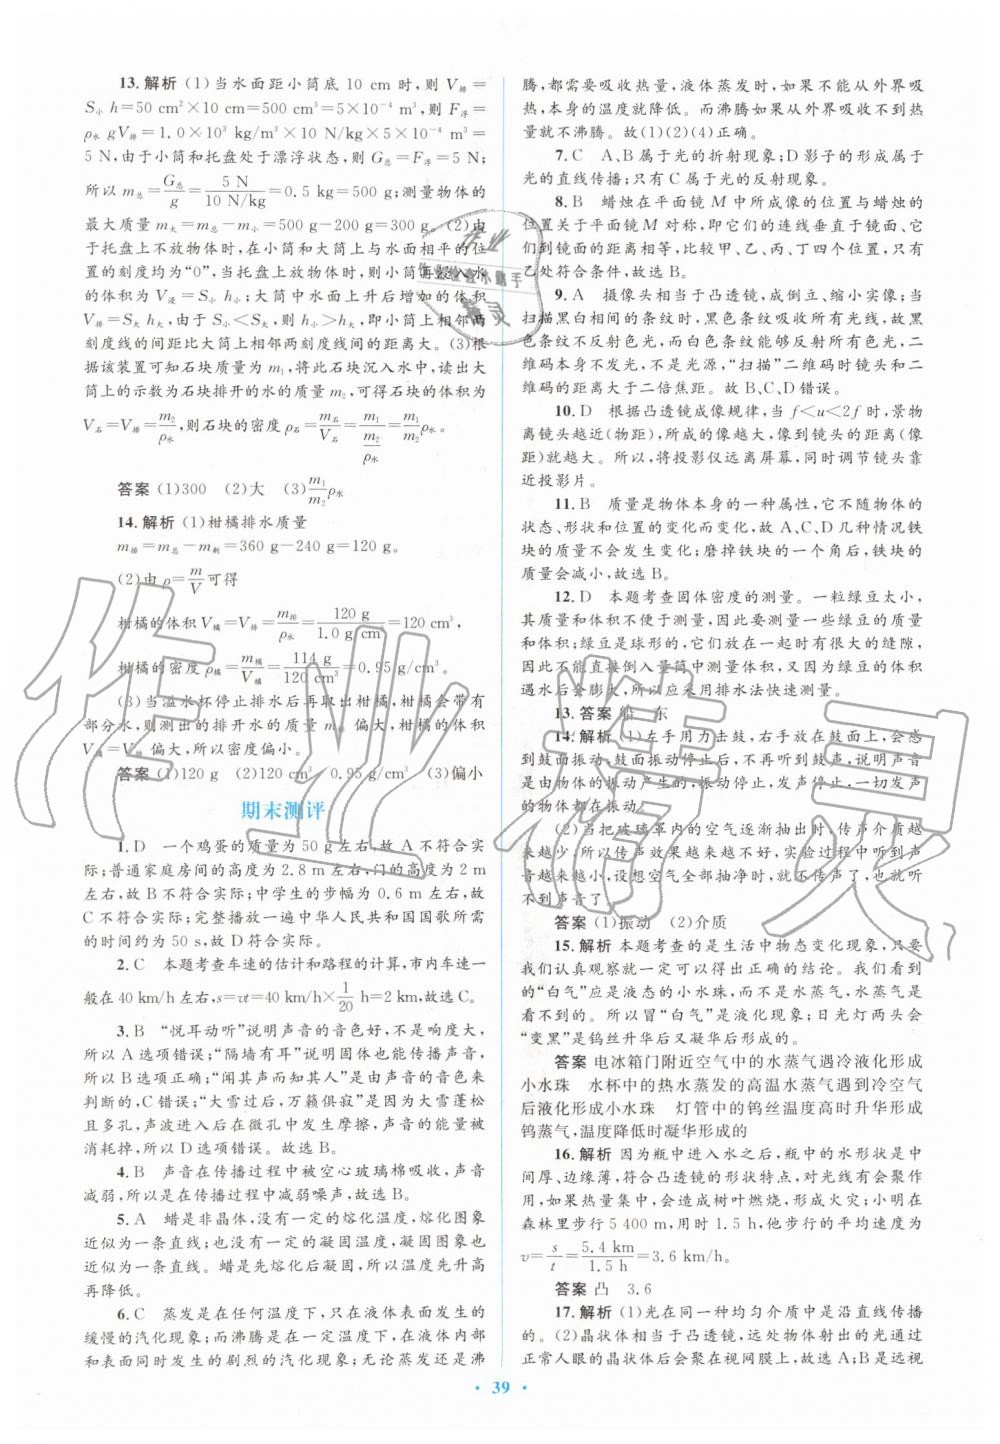 13. 解析 (1)当水面距小筒底 10 cm 时,则 V排=
S小 h=50 cm²×10 cm=500 cm³=5×10⁻⁴ m³,则 F浮=
ρ水 gV排=1.0×10³ kg/m³×10 N/kg×5×10⁻⁴ m³=
5 N,由于小筒和托盘处于漂浮状态,则 G总=F浮=5 N;
所以 m总=G总/g=5 N/10 N/kg=0.5 kg=500 g;测量物体的
最大质量 m大=m总-m小=500 g-200 g=300 g。(2)由
于托盘上不放物体时,在小筒和大筒上与水面相平的位
置的刻度均为“0”,当托盘上放物体时,小筒再浸入水
的体积为 V浸=S小 h小;大筒中水面上升后增加的体积
V增=S大 h大,由于 S小<S大,所以 h小>h大,即小筒上相邻两
刻度线的间距比大筒上相邻两刻度线间的距离大。(3)根
据该装置可知石块的质量为 m₁,将此石块沉入水中,读出大
筒上的示数为石块排开的水的质量 m₂,可得石块的体积为
V石=V排=m₂/ρ水,则石块的密度 ρ石=m石/V石=m₁/(m₂/ρ水)=m₁/m₂ρ水。
答案 (1)300 (2)大 (3)m₁/m₂ρ水
14. 解析 (1)柑橘排水质量
m排=m总-m剩=360 g-240 g=120 g。
(2)由 ρ=m/V可得
柑橘的体积 V橘=V排=m排/ρ水=120 g/1.0 g/cm³=120 cm³,
柑橘的密度 ρ橘=m橘/V橘=114 g/120 cm³=0.95 g/cm³。
(3)当溢水杯停止排水后再取出柑橘,柑橘会带有
部分水,则测出的排开水的质量 m排偏大,柑橘的体积
V橘=V排偏大,所以密度偏小。
答案 (1)120 g (2)120 cm³ 0.95 g/cm³ (3)偏小
期末测评
1. D 一个鸡蛋的质量为 50 g 左右,故 A 不符合实
际;普通家庭房间的高度为 2.8 m 左右,门的高度为 2 m
左右,故 B 不符合实际;中学生的步幅为 0.6 m 左右,故
C 不符合实际;完整播放一遍中华人民共和国国歌所需
的时间约为 50 s,故 D 符合实际。
2. C 本题考查车速的估计和路程的计算,市内车速一
般在 40 km/h 左右,s=vt=40 km/h×1/20 h=2 km,故选 C。
3. B “悦耳动听”说明声音的音色好,不是响度大,
所以 A 选项错误;“隔墙有耳”说明固体也能传声,所以
B 选项正确;“闻其声而知其人”是根据声音的音色来
判断的,C 错误;“大雪过后,万籁俱寂”是由于大雪蓬松
且多孔,声波进入后在微孔中发生摩擦,声音的能量被
消耗掉,所以 D 选项错误。故选 B。
4. B 声音在传播过程中被空心玻璃棉吸收,声音
减弱,所以是在传播过程中减弱噪声,故选 B。
5. A 蜡是非晶体,没有一定的熔化温度,熔化图象
近似为一条直线;也没有一定的凝固温度,凝固图象也
近似为一条直线。蜡是先熔化后凝固,所以温度先升高
再降低。
6. C 蒸发是在任何温度下,只在液体表面发生的
缓慢的汽化现象;而沸腾是在一定温度下,在液体内部
和表面同时发生的剧烈的汽化现象;无论蒸发还是沸
腾,都需要吸收热量,液体蒸发时,如果不能从外界吸
热,本身的温度就降低。而沸腾如果从外界吸收不到热
量就不沸腾。故(1)(2)(4)正确。
7. C A、B 属于光的折射现象;D 影子的形成属于
光的直线传播;只有 C 属于光的反射现象。
8. B 蜡烛在平面镜 M 中所成像的位置与蜡烛的
位置关于平面镜 M 对称,即它们的连线与平面镜垂直,它
们到平面镜的距离相等,比较甲、乙、丙、丁四个位置,只有
乙处符合条件,故选 B。
9. A 摄像头相当于凸透镜,成倒立、缩小实像;当
扫描黑白相间的条纹时,黑色条纹吸收所有光线,故黑
色条纹不反射色光,而白色条纹能够反射所有色光,因
此反射的是白光,不是黑光,“扫描”二维码时镜头和二
维码的距离大于二倍焦距。故 B、C、D 错误。
10. D 根据凸透镜成像规律,当 f<u<2f 时,景物
离镜头越近(物距),成的像越大,像到镜头的距离(像
距)就越大。所以,将投影仪远离屏幕,同时调节镜头靠
近投影片。
11. B 质量是物体本身的一种属性,它不随物体的
状态、形状和位置的变化而变化,故 A、C、D 几种情况铁
块的质量不会发生变化;磨掉铁块的一个角后,铁块的
质量会减小,故选 B。
12. D 本题考查固体密度的测量。一粒绿豆太小,
其质量和体积不便于测量,可以测量一些绿豆的质量
和体积;绿豆是球形的,它们放在一起时有很大的缝隙,
因此不能直接倒入量筒中测量体积,又因为绿豆的体积
遇水后会膨大,所以应采用排水法快速测量。
13. 答案 船 东
14. 解析 (1)左手用力击鼓,右手放在鼓面上,会
感到鼓面振动、鼓面振动停止后,不再发声,说明声音
是由物体的振动产生的,振动停止,发声停止,一切发声的
物体都在振动。
(2)当把玻璃罩内的空气逐渐抽出时,传声介质越
来越少,所以传声效果越来越不好,实验过程中听到声
音越来越小,设想空气全部抽净时,就不能传声了,也就听
不到声音了。
答案 (1)振动 (2)介质
15. 解析 本题考查的是生活中物态变化现象,只要
我们认真观察就一定可以得出正确的结论。我们看到
的“白气”应是液态的小水珠,而不是水蒸气,水蒸气是
看不到的。所以冒“白气”是液化现象;日光灯两头会
“变黑”是钨丝升华后又凝华后形成的。
答案 电冰箱门附近空气中的水蒸气遇冷液化形成
小水珠 水杯中的热水蒸发的高温水蒸气遇到冷空气
后液化形成小水珠 灯管中的钨丝温度高时升华形成
钨蒸气,温度降低时凝华形成的
16. 解析 因为瓶中进入水之后,瓶中的水形状是中
间厚、边缘薄,符合凸透镜的形状特点,对光线有会聚
作用,如果热量集中,会造成树叶燃烧,形成火灾;小明在
森林里步行 5 400 m,用时 1.5 h,他步行的平均速度为
v=s/t=5.4 km/1.5 h=3.6 km/h。
答案 凸 3.6
17. 解析 (1)光在同一种均匀介质中是沿直线传播
的。(2)晶状体相当于凸透镜,远处物体射出的光通过
正常人眼的晶状体后会聚在视网膜上,故选 A;B 是远视
· 39 ·
作业精灵
作业
作业检查小帮手
精灵